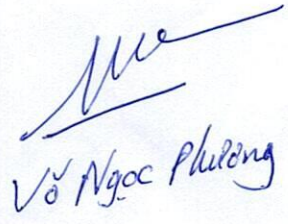 Võ Ngọc Phương